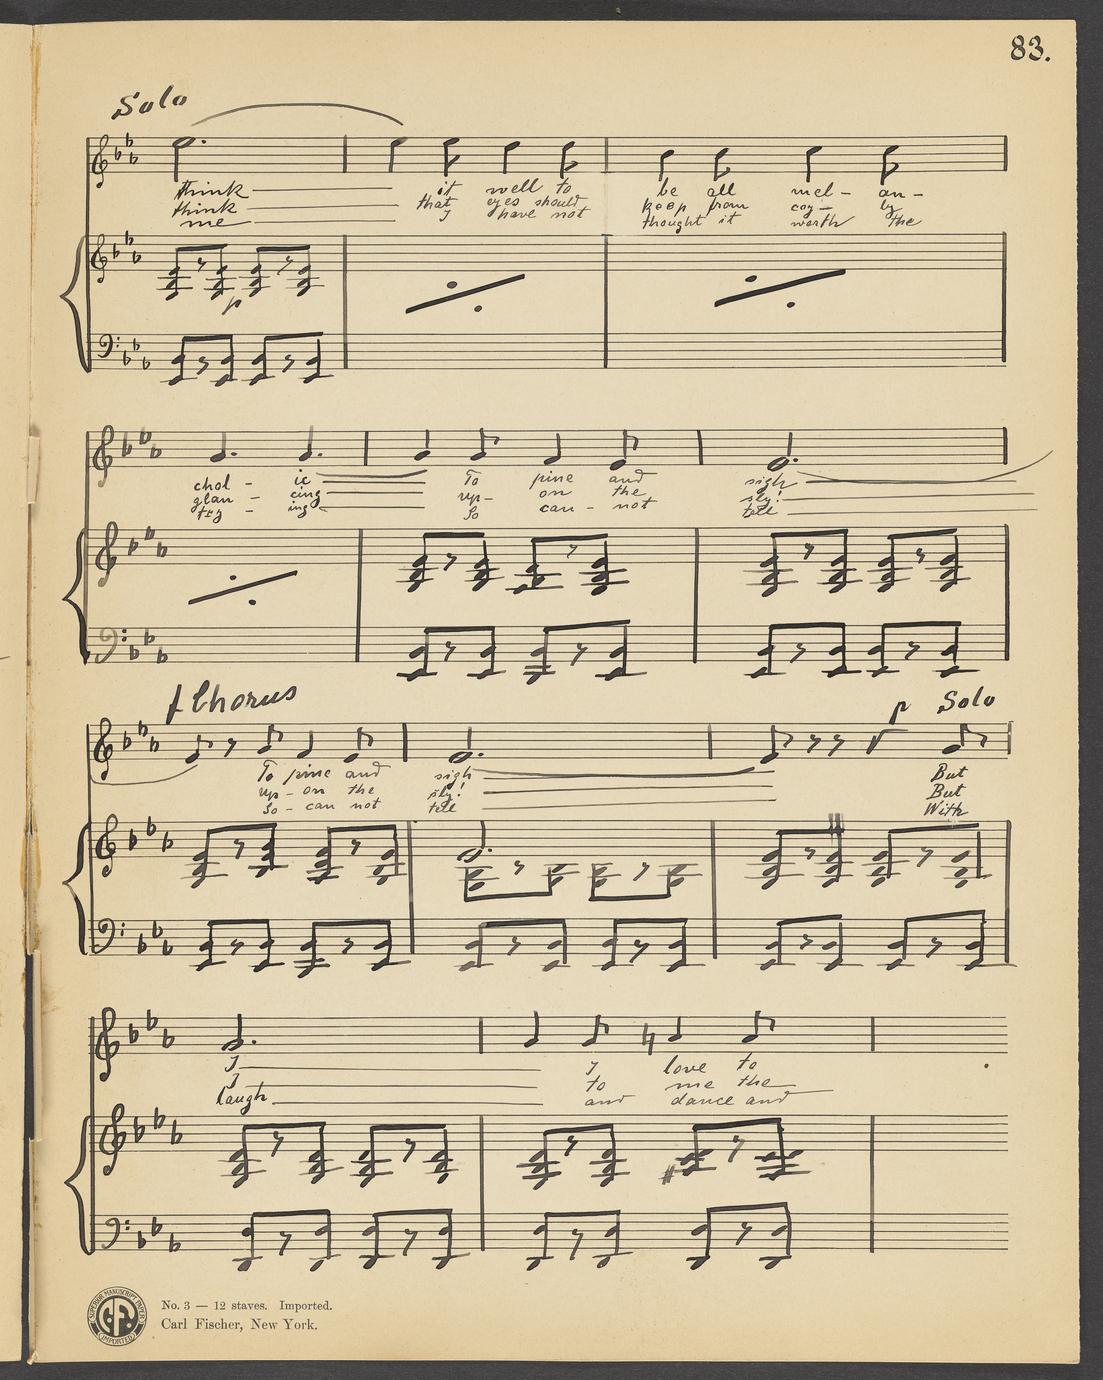 83.
Solo
think it well to be all mel- an-
think that eyes should keep from coy- ly
me I have not thought it worth the
p
chol - ic To pine and sigh
glan - cing up- on the sly!
try - ing So can - not tell
f Chorus
p Solo
To pine and sigh But
up - on the sly! But
So - can not tell With
I I love to
I to me the
laugh and dance and
SUPERIOR MANUSCRIPT PAPER
CF
(IMPORTED)
No. 3 — 12 staves. Imported.
Carl Fischer, New York.